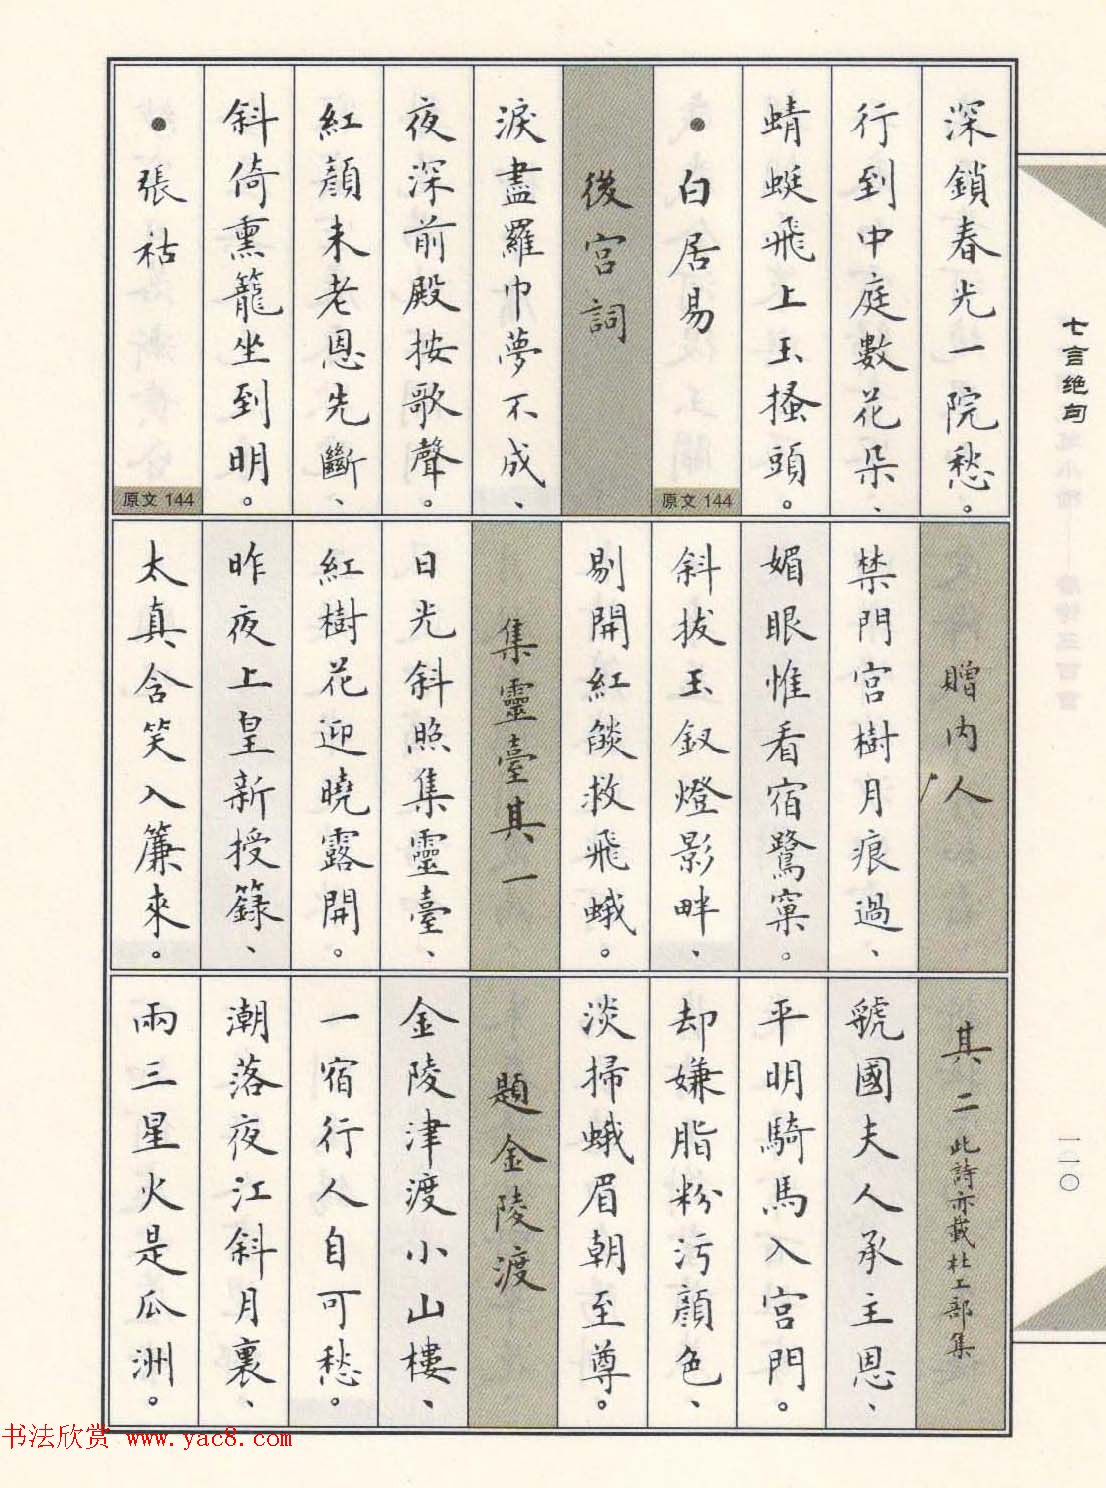 深鎖春光一院愁。
行到中庭數花朵、
蜻蜓飛上玉搔頭。
•白居易
原文 144
後宮詞
淚盡羅巾夢不成、
夜深前殿按歌聲。
紅顏未老恩先斷、
斜倚熏籠坐到明。
•張祜
原文 144
贈內人
禁門宮樹月痕過、
媚眼惟看宿鷺窠。
斜拔玉釵燈影畔、
剔開紅燄救飛蛾。
集靈臺其一
日光斜照集靈臺、
紅樹花迎曉露開。
昨夜上皇新授籙、
太真含笑入簾來。
其二此詩亦載杜工部集
虢國夫人承主恩、
平明騎馬入宮門。
却嫌脂粉污顏色、
淡掃蛾眉朝至尊。
題金陵渡
金陵津渡小山樓、
一宿行人自可愁。
潮落夜江斜月裏、
兩三星火是瓜洲。
七言绝句
一一〇
书法欣赏 www.yac8.com